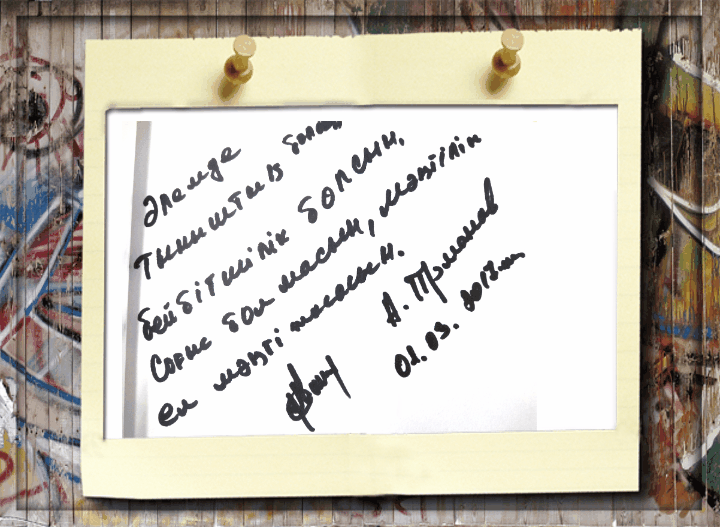 Әлемде
тыныштық болсын
бейбітшілік болсын,
Соғыс болмасын, мәңгілік
ел мәңгі жасасын.
01.03.2013 ж.